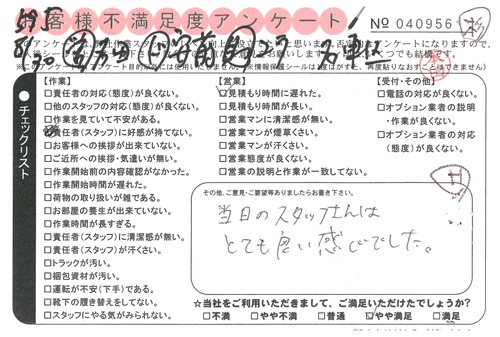 お客様不満足度アンケート
No 040956
チェックリスト
【作業】
□責任者の対応(態度)が良くない。
□他のスタッフの対応(態度)が良くない。
□作業を見ていて不安がある。
□責任者(スタッフ)に好感が持てない。
□お客様への挨拶が出来ていない。
□ご近所への挨拶・気遣いが無い。
□作業開始前の内容確認がなかった。
□作業開始時間が遅れた。
□荷物の取り扱いが雑である。
□お部屋の養生が出来ていない。
□作業時間が長すぎる。
□責任者(スタッフ)に清潔感が無い。
□責任者(スタッフ)が汗くさい。
□トラックが汚い。
□梱包資材が汚い。
□運転が不安(下手)である。
□靴下の履き替えをしてない。
□スタッフにやる気がみられない。
【営業】
□見積もり時間に遅れた。
□見積もり時間が長い。
□営業マンに清潔感が無い。
□営業マンが煙草くさい。
□営業マンが汗くさい。
□営業態度が良くない。
□営業の説明と作業が一致してない。
【受付・その他】
□電話の対応が良くない。
□オプション業者の説明
・作業が良くない。
□オプション業者の対応
(態度)が良くない。
その他、ご意見・ご要望等ありましたらお書き下さい。
当日のスタッフさんは
とても良い感じでした。
☆当社をご利用いただきまして、ご満足いただけたでしょうか?
□不満 □やや不満 □普通 □やや満足 □満足